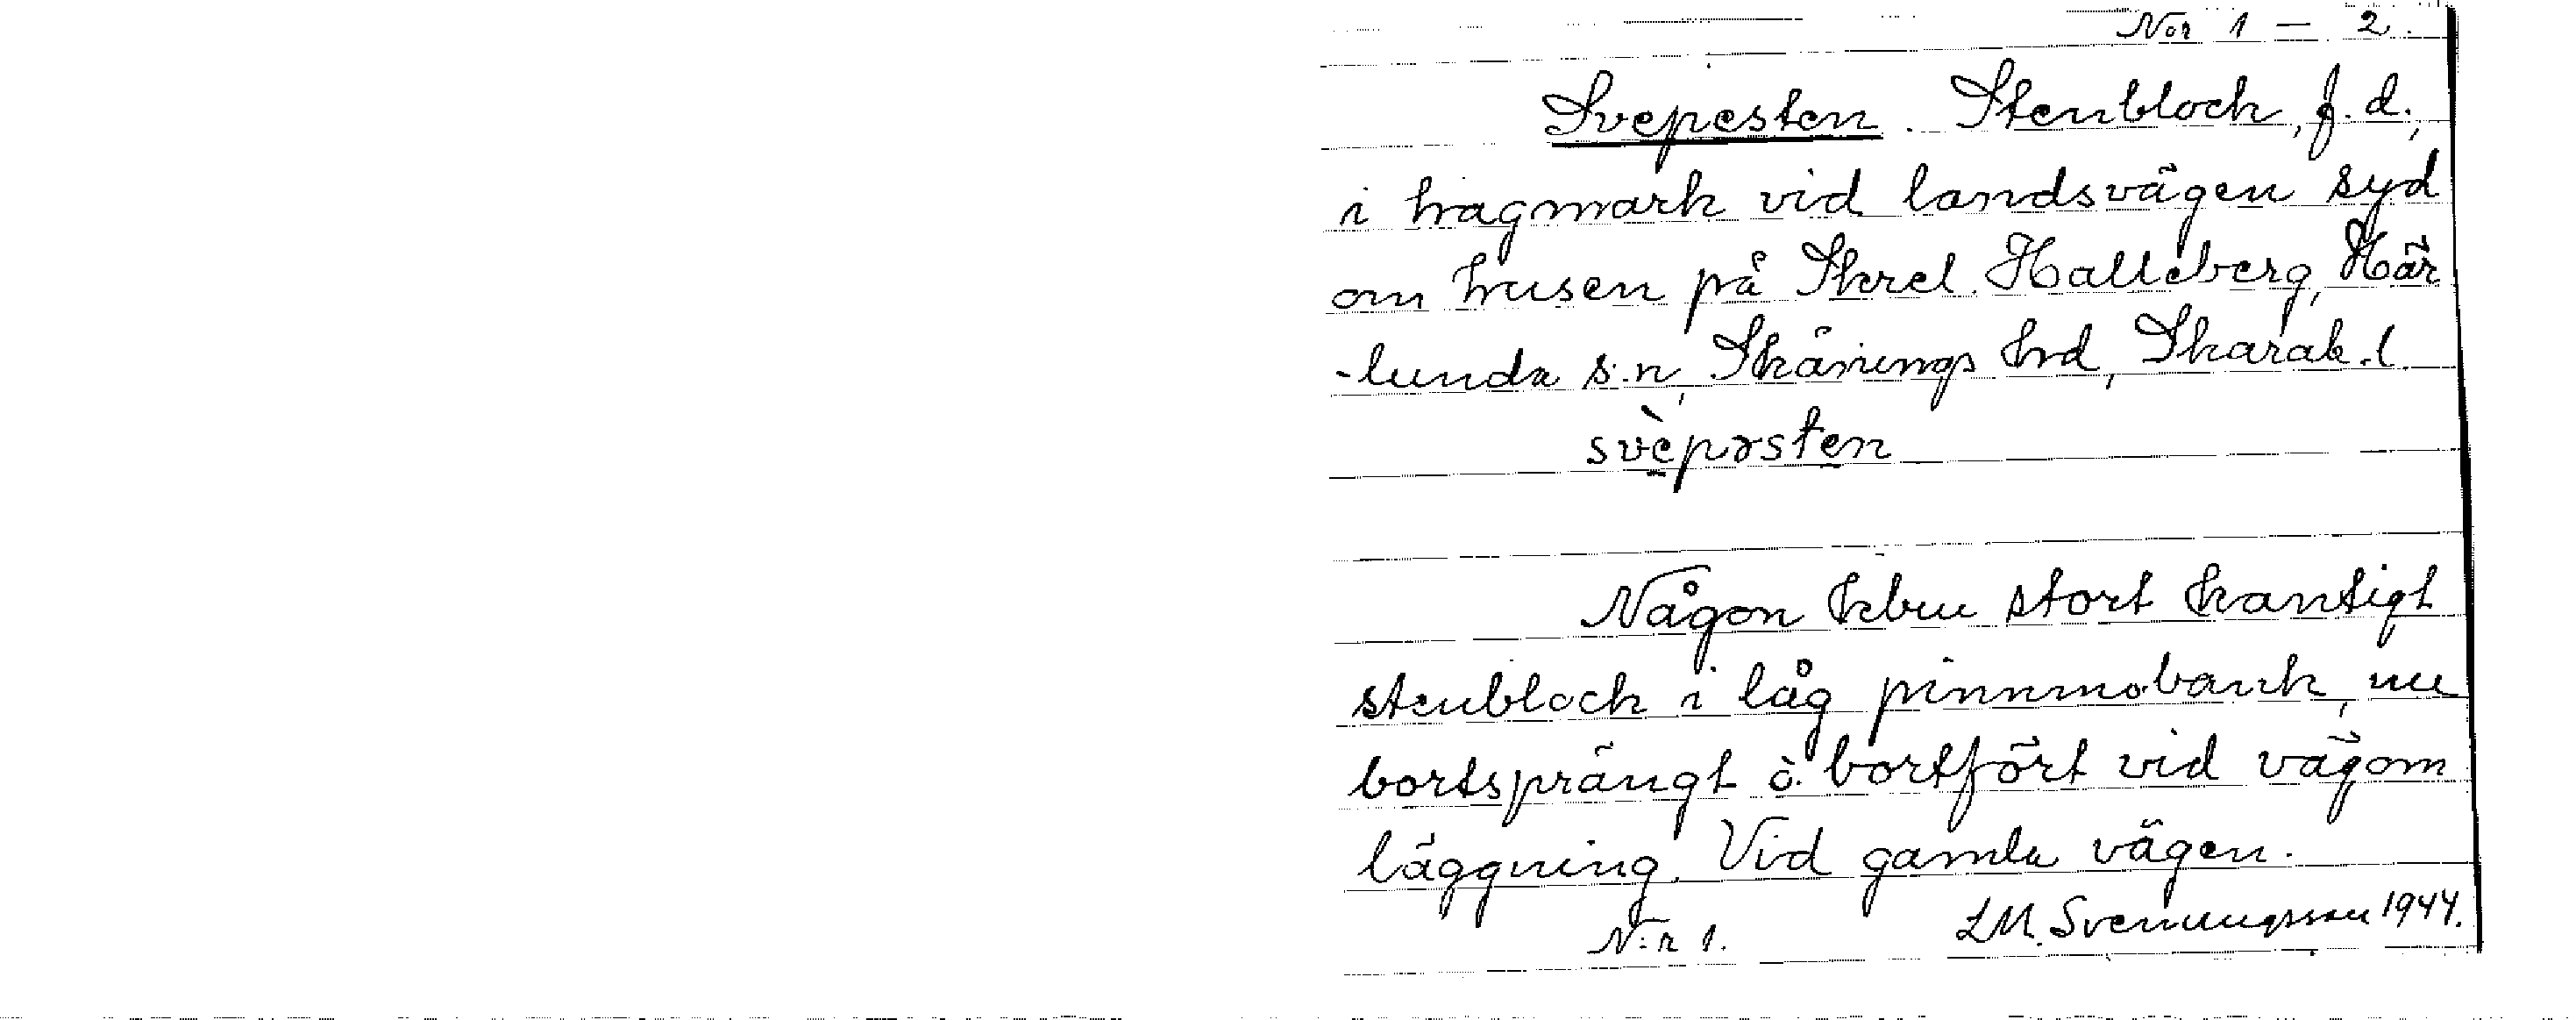 Nor 1 – 2.
Svepesten. Stenblock, f.d.,
i hagmark vid landsvägen syd
om husen på Skrel. Halleberg, Här
-lunda s:n, Skånings hd, Skarab.l.
svèpəsten
Någon kbm stort kantigt
stenblock i låg pinnmobank, nu
bortsprängt o. bortfört vid vägom
läggning. Vid gamla vägen.
N:r 1. LM. Svenungsson 1944.